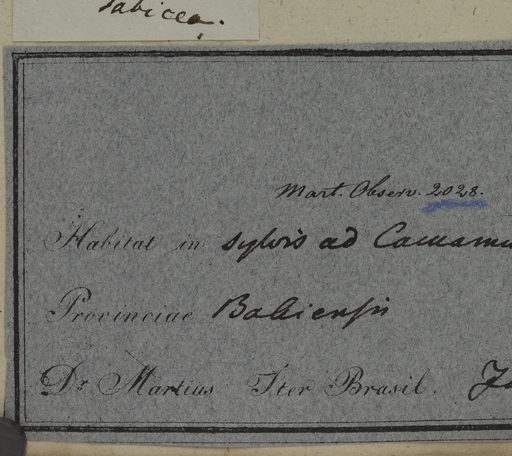 Sabicea.
Mart. Observ. 2028.
Habitat in sylvis ad
Provinciae Bahiensis
Dr Martius Iter Brasil.